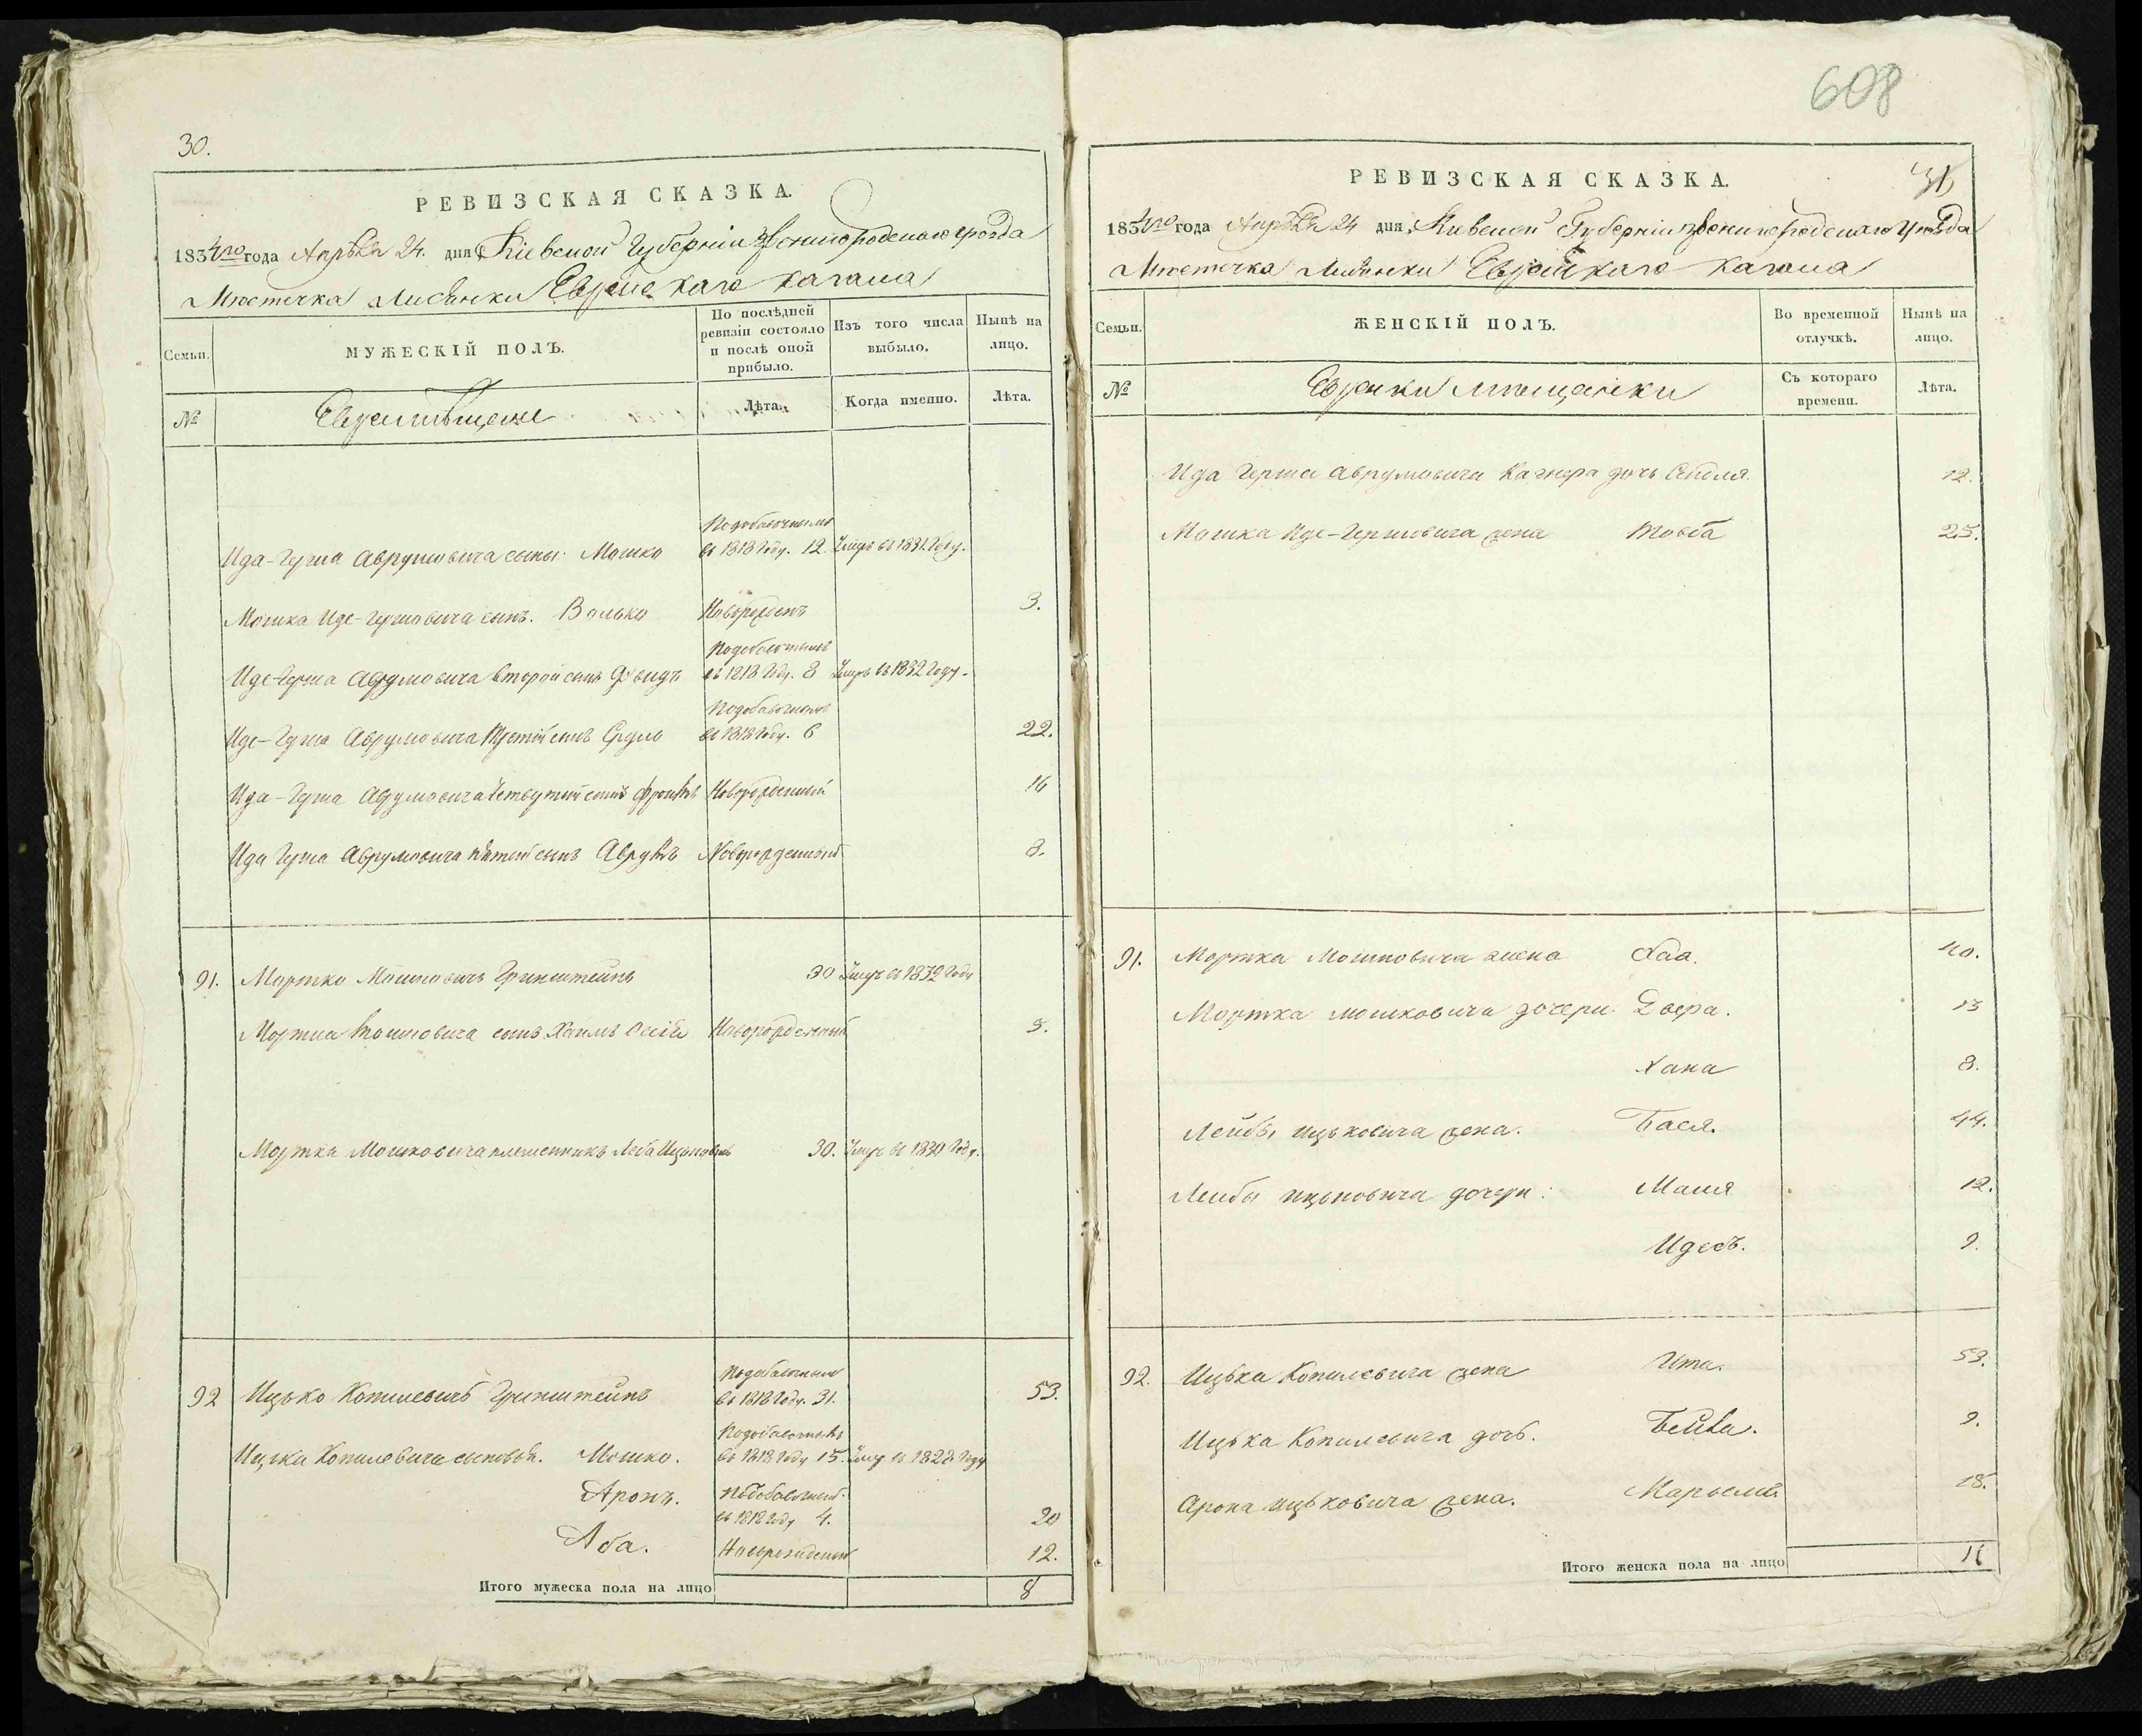 30.
РЕВИЗСКАЯ СКАЗКА.
1834го года Апрѣля 24. дня Кіевской Губерніи Звенигородскаго уѣзда
Мѣстечка Лисянки Еврейскаго кагала
Семьи.
МУЖЕСКІЙ ПОЛЪ.
По послѣдней ревизіи состояло и послѣ оной прибыло.
Изъ того числа выбыло.
Нынѣ на лицо.
№
Евреи мѣщане
Лѣта.
Когда именно.
Лѣта.
Подобавочнымъ
Ида-Герша Аврумовича сыны: Мошко въ 1818 Году. 12. Умеръ въ 1831. Году.
Мошка Иде-Гершовича сынъ. Волько Новорожденъ 3.
Подобавочнымъ
Иде-Герша Аврумовича второй сынъ Довидъ въ 1818 Году. 8 Умеръ въ 1832 Году.
Подобавочнымъ
Иде-Герша Аврумовича Третій сынъ Сруль въ 1818 Году. 6 22.
Ида-Герша Аврумовича Четвертый сынъ Новорожденный 16
Ида Герша Аврумовича пятый сынъ Новорожденный 8.
91. Мортко Мошковичъ Гринштейнъ 30 Умеръ въ 1832 Году
Мортка Мошковича сынъ Хаимъ Новорожденный
Мортка Мошковича племенникъ Леба Ицковичъ 30. Умеръ въ 1830 Году.
Подобавочнымъ
92 Ицько Копилевичъ Гринштейнъ въ 1818 Году. 31. 53.
Подобавочнымъ
Ицька Копилевича сыновья. Мошко. въ 1818 Году 15. Умеръ въ 1828 Году
Подобавочнымъ
Аронъ. въ 1818 Году 4. 20
Аба. Новорожденный 12.
Итого мужеска пола на лицо 8
608
31
РЕВИЗСКАЯ СКАЗКА.
1834го года Апрѣля 24 дня, Кіевской Губерніи Звенигородскаго Уѣзда
Мѣстечка Лисянки Еврейскаго кагала
Семьи.
ЖЕНСКІЙ ПОЛЪ.
Во временной отлучкѣ.
Нынѣ на лицо.
№
Еврейки мѣщанки
Съ котораго времени.
Лѣта.
Ида Герша Аврумовича дочь 12.
Мошка Иде-Гершовича жена Товба 25.
91. Мортка Мошковича жена Хая. 40.
Мортка мошковича дочери: Двера. 13
Хана 8.
Лейбы ицьковича жена. Бася. 44.
Лейбы ицьковича дочери: Маля 12.
Идесъ. 9.
92. Ицька Копилевича жена Ита. 53.
Ицька Копилевича дочь. Бейла. 9.
Арона ицьковича жена. Марьемъ 18.
Итого женска пола на лицо 11